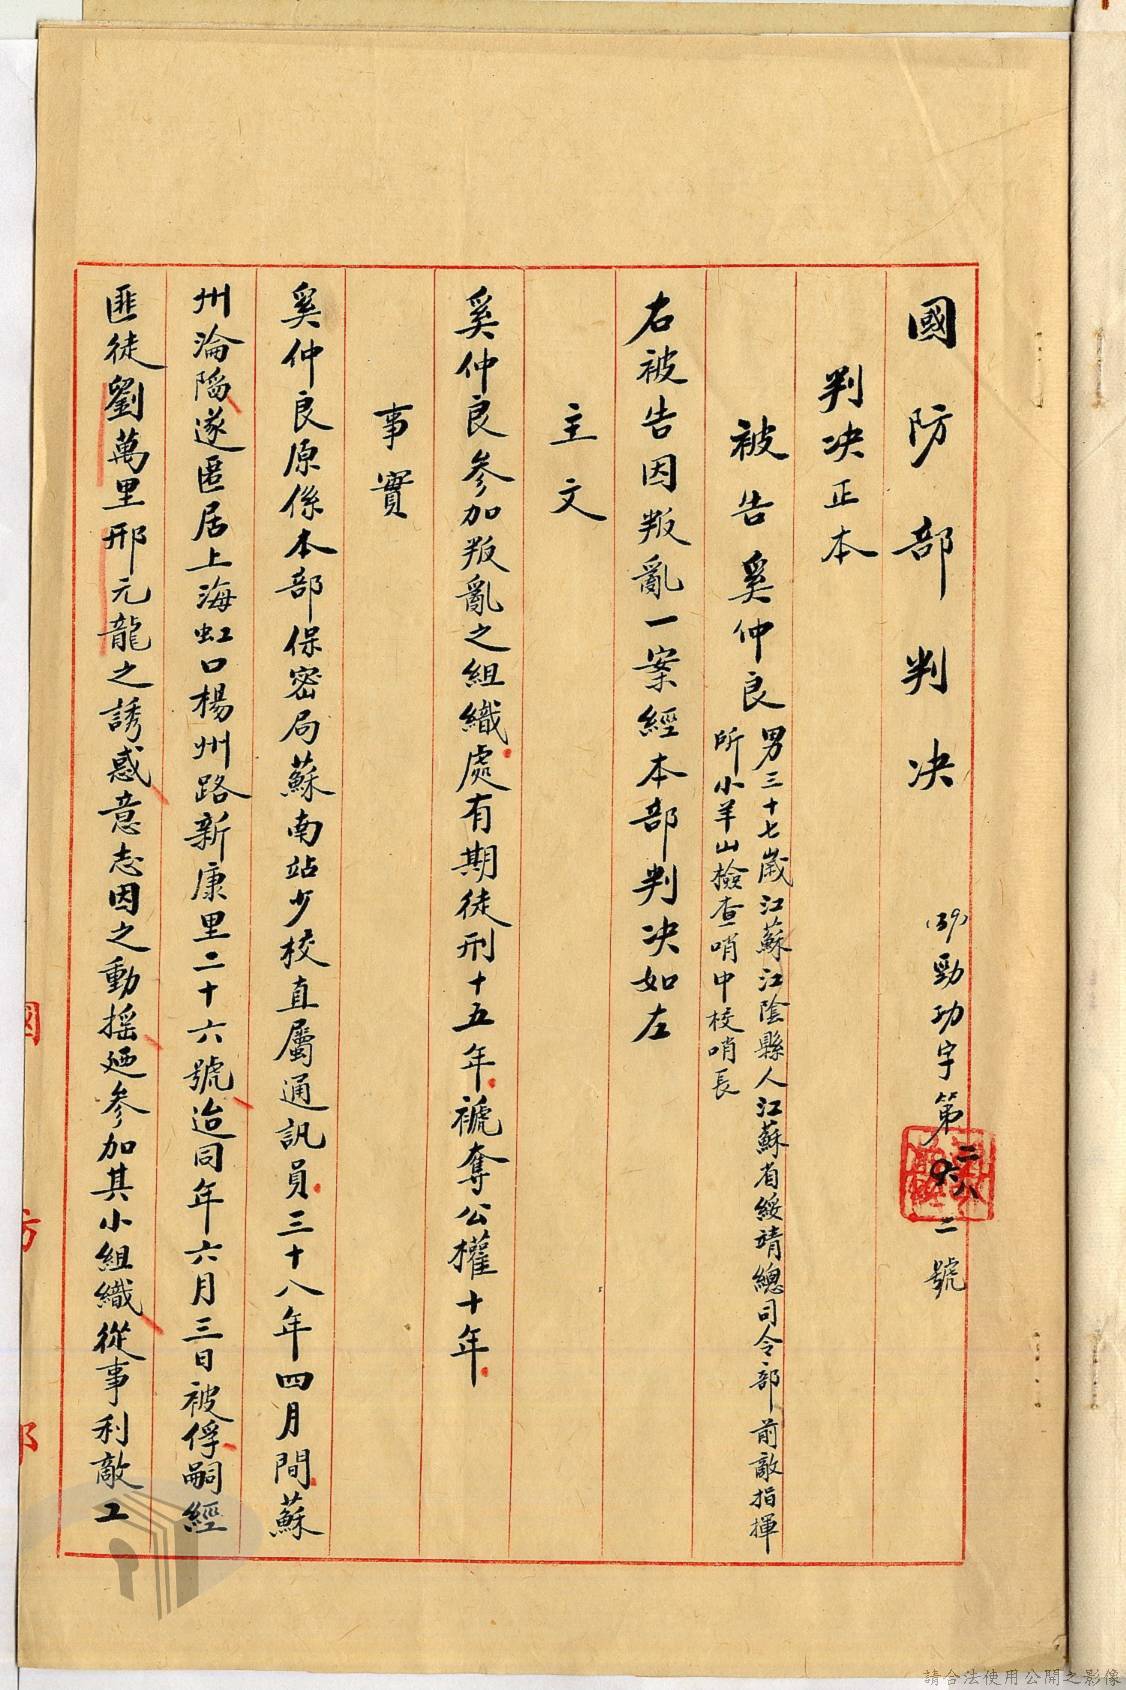 國防部判決 (39)勁功字第 二號
判決正本
被告奚仲良 男三十七歲江蘇江陰縣人江蘇省綏靖總司令部前敵指揮
所小羊山檢查哨中校哨長
右被告因叛亂一案經本部判決如左
主文
奚仲良參加叛亂之組織處有期徒刑十五年褫奪公權十年
事實
奚仲良原係本部保密局蘇南站少校直屬通訊員三十八年四月間蘇
州淪陷遂匿居上海虹口楊州路新康里二十六號迨同年六月三日被俘嗣經
匪徒劉萬里邢元龍之誘惑意志因之動搖廼參加其小組織從事利敵工
國防部
請合法使用公開之影像